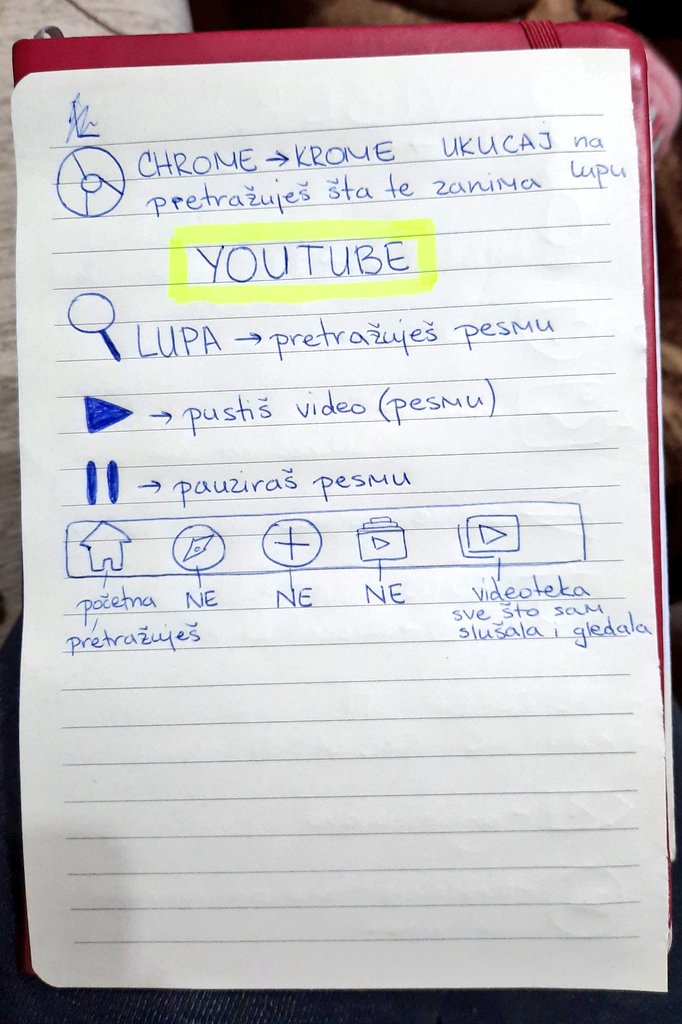 CHROME → KROME UKUCAJ na lupu
pretražuješ šta te zanima
YOUTUBE
LUPA → pretražuješ pesmu
→ pustiš video (pesmu)
→ pauziraš pesmu
početna NE NE NE videoteka
pretražuješ sve što sam
slušala i gledala